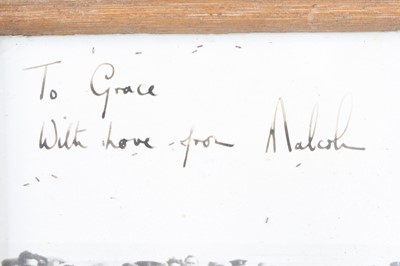 To Grace
With love from Malcolm